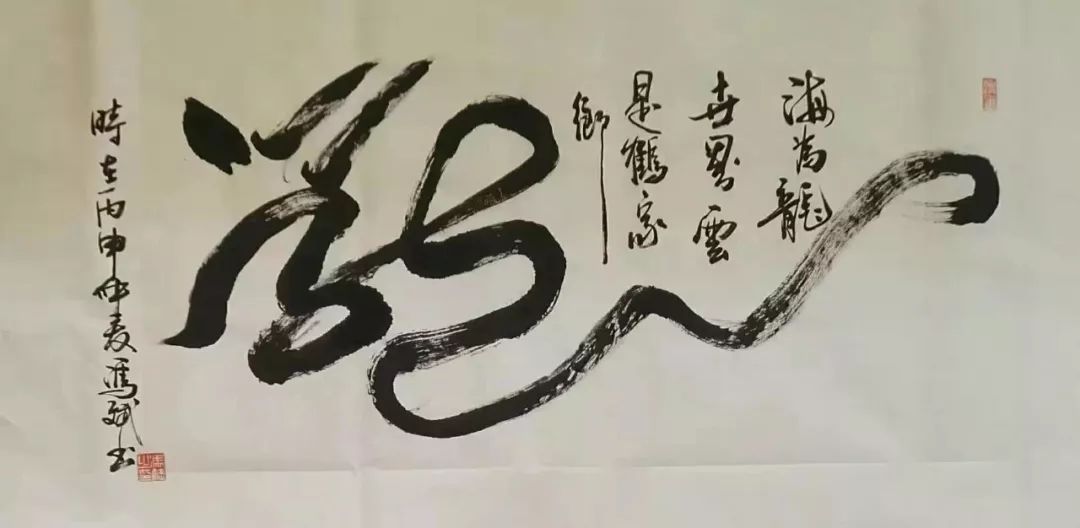 海為龍
世界雲
是鶴家
鄉
龍
時在丙申仲夏馮斌书